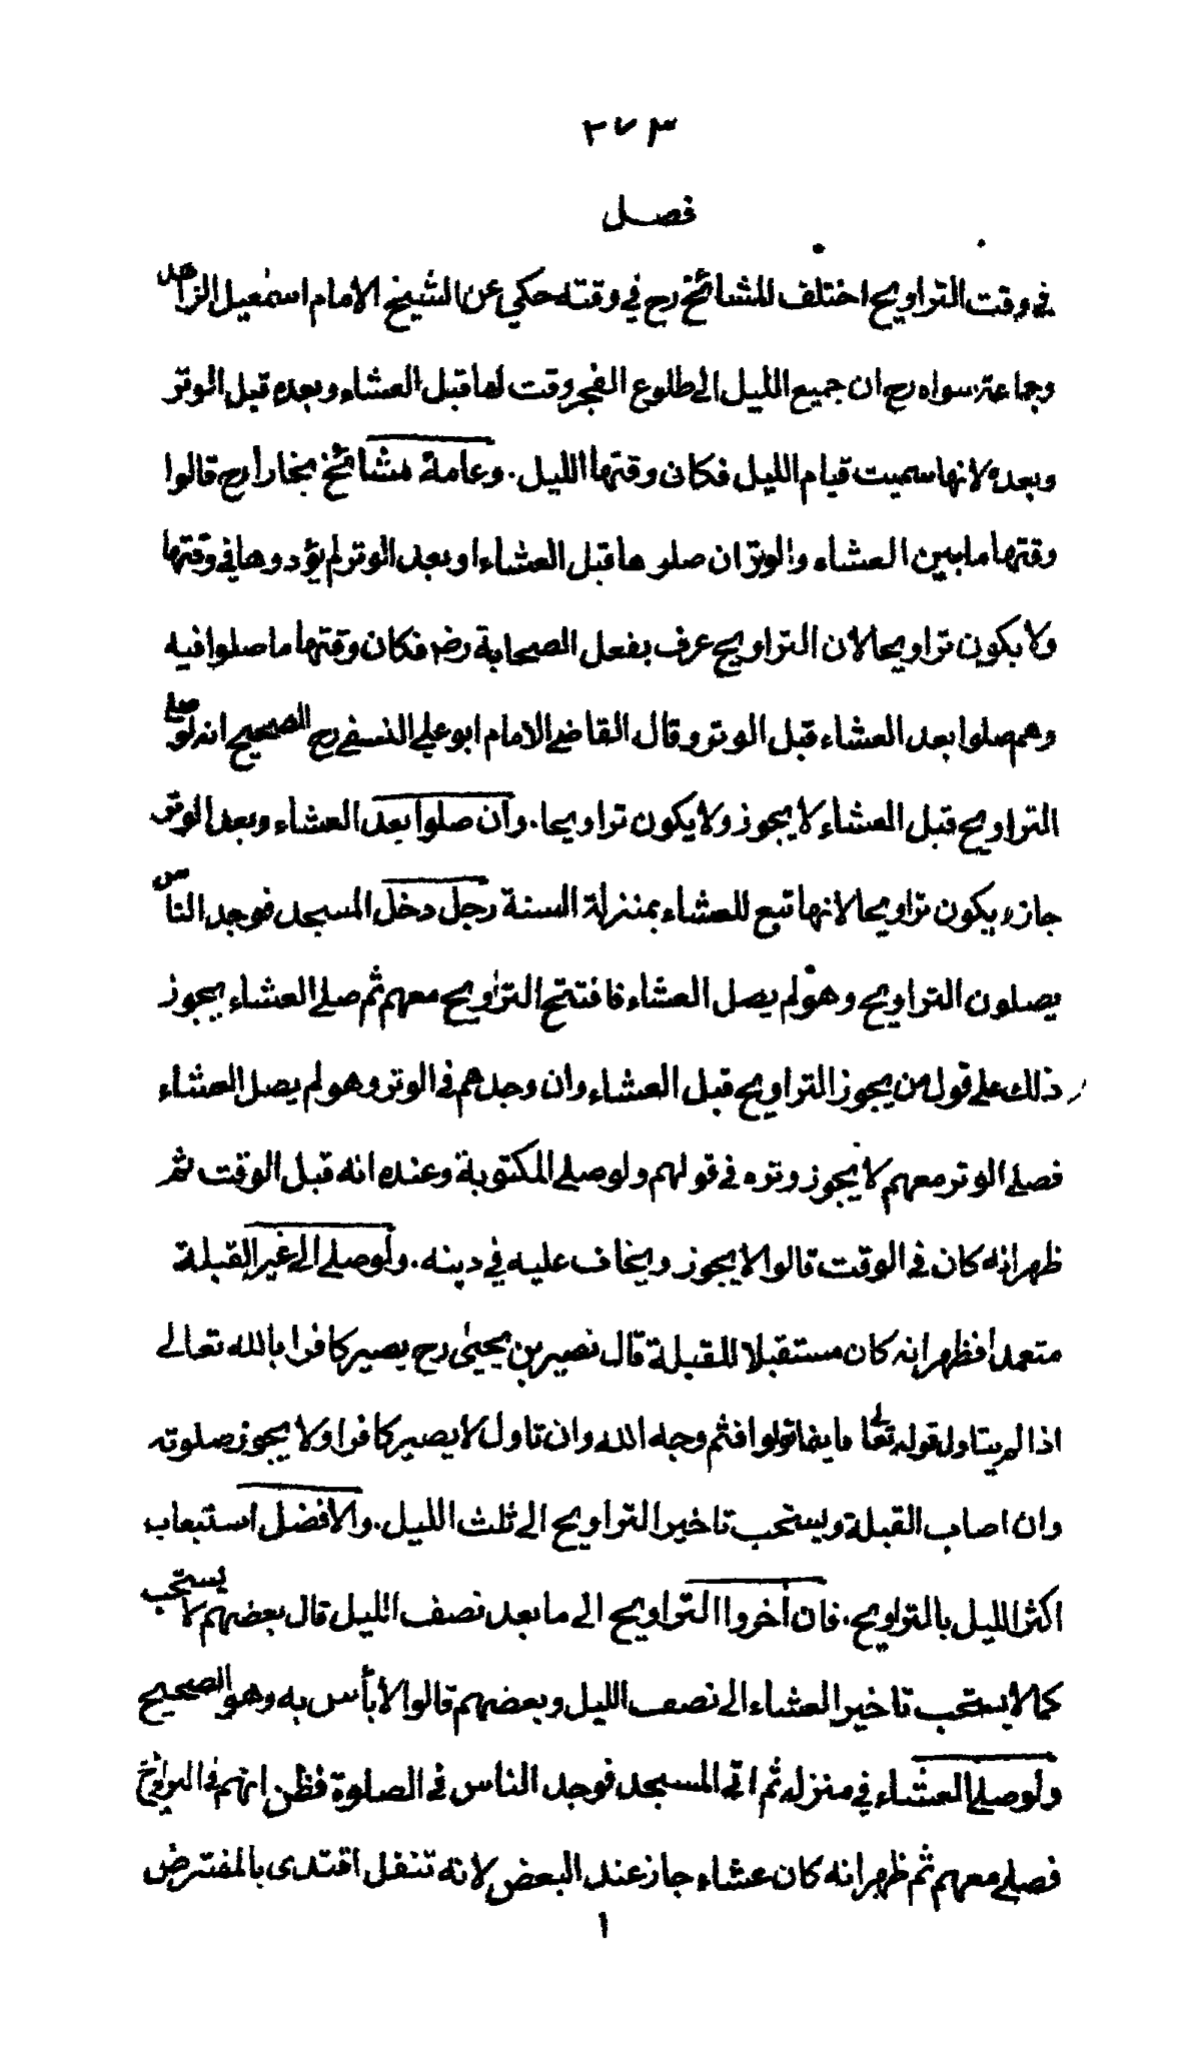 ٢٧٣
فصل
في وقت التراويح اختلف المشائخ رح في وقته حكي عن الشيخ الامام اسمعيل الزاهد
وجماعة سواه رح ان جميع الليل الى طلوع الفجر وقت لها قبل العشاء وبعده قبل الوتر
وبعده لانها سميت قيام الليل فكان وقتها الليل . وعامة مشائخ بخارا رح قالوا
وقتها ما بين العشاء والوتر ان صلوها قبل العشاء او بعد الوتر لم يؤدوها في وقتها
ولا يكون تراويحا لان التراويح عرف بفعل الصحابة رضه فكان وقتها ما صلوا فيه
وهم صلوا بعد العشاء قبل الوتر وقال القاضي الامام ابو علي النسفي رح الصحيح انه لو صلى
التراويح قبل العشاء لا يجوز ولا يكون تراويحا . وان صلوا بعد العشاء وبعد الوتر
جاز ويكون تراويحا لانها تبع للعشاء بمنزلة السنة رجل دخل المسجد فوجد الناس
يصلون التراويح وهو لم يصل العشاء فافتتح التراويح معهم ثم صلى العشاء يجوز
ذلك على قول من يجوز التراويح قبل العشاء وان وجدهم في الوتر وهو لم يصل العشاء
فصلى الوتر معهم لا يجوز وتره في قولهم ولو صلى المكتوبة وعنده انه قبل الوقت ثم
ظهر انه كان في الوقت قالوا لا يجوز ويخاف عليه في دينه . ولو صلى الى غير القبلة
متعمدا فظهر انه كان مستقبلا للقبلة قال نصير بن يحيى رح يصير كافرا بالله تعالى
اذا لم يتاول قوله تعالى فاينما تولوا فثم وجه الله وان تاول لا يصير كافرا ولا يجوز صلوته
وان اصاب القبلة ويستحب تاخير التراويح الى ثلث الليل . والافضل استيعاب
اكثر الليل بالتراويح . فان أخروا التراويح الى ما بعد نصف الليل قال بعضهم لا يستحب
كما لا يستحب تاخير العشاء الى نصف الليل وبعضهم قالوا لا بأس به وهو الصحيح
ولو صلى العشاء في منزله ثم اتى المسجد فوجد الناس في الصلوة فظن انهم في التراويح
فصلى معهم ثم ظهر انه كان عشاء جاز عند البعض لانه تنفل اقتدى بالمفترض
١